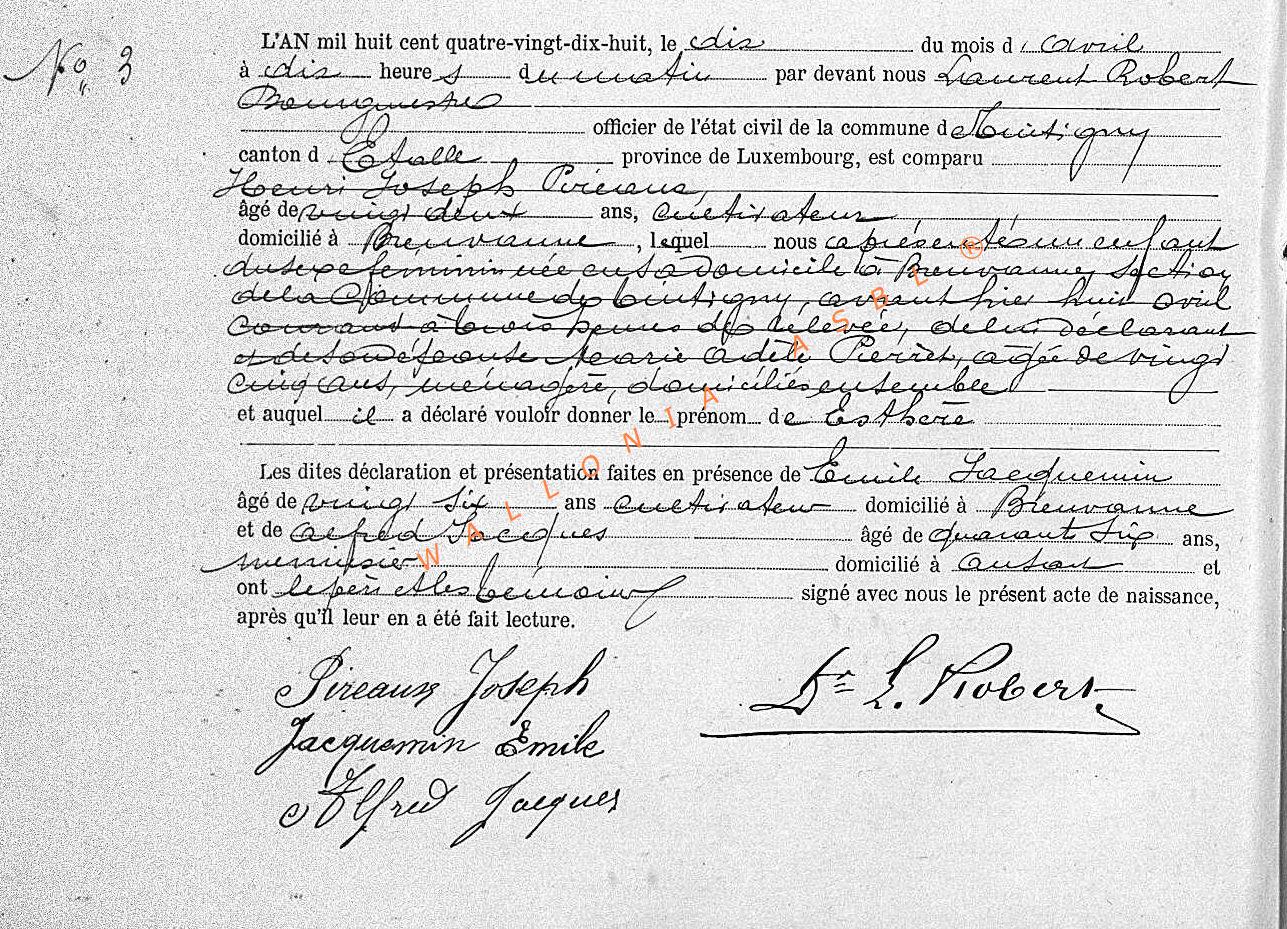 No 3
L'AN mil huit cent quatre-vingt-dix-huit, le dix du mois d'avril
à dix heures du matin par devant nous Laurent Robert
Bourgmestre
officier de l'état civil de la commune de Tintigny
canton d'Etalle province de Luxembourg, est comparu
Henri Joseph Pireaux,
âgé de vingt deux ans, cultivateur
domicilié à Breuvanne, lequel nous a présenté un enfant
du sexe féminin née en sa domicile à Breuvanne, section
de la Commune de Tintigny, avant hier huit avril
courant à trois heures de relevée, de lui déclarant
et de son épouse Marie Adèle Pierret, agée de vingt
cinq ans, ménagère, domiciliés ensemble
et auquel il a déclaré vouloir donner le prénom de Esthère
Les dites déclaration et présentation faites en présence de Emile Jacquemin
âgé de vingt six ans cultivateur domicilié à Breuvanne
et de Alfred Jacques âgé de quarante six ans,
menuisier domicilié à Ansart et
ont le père et les témoins signé avec nous le présent acte de naissance,
après qu'il leur en a été fait lecture.
Pireaux Joseph
Dr L. Robert.
Jacquemin Emile
Alfred Jacques
WALLONIA ASBL ®